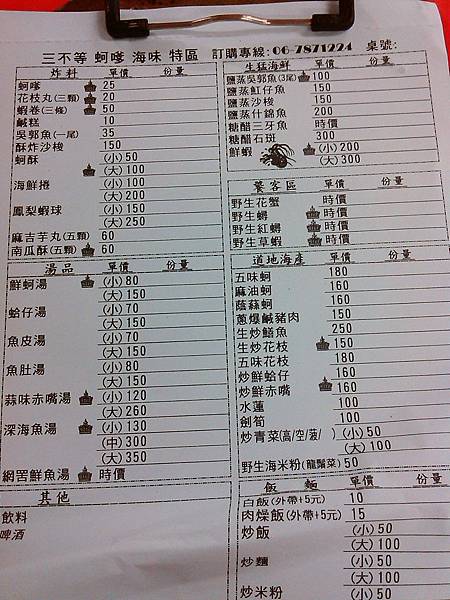 三不等 蚵嗲 海味 特區 訂購專線:06-7871224 桌號:
炸料 單價 份量
蚵嗲 25
花枝丸(三顆) 20
蝦卷(三條) 50
鹹糕 10
吳郭魚(一尾) 35
酥炸沙梭 150
蚵酥 (小) 50
(大) 100
海鮮捲 (小) 100
(大) 200
鳳梨蝦球 (小) 150
(大) 250
麻吉芋丸(五顆) 60
南瓜酥(五顆) 60
湯品 單價 份量
鮮蚵湯 (小) 80
(大) 150
蛤仔湯 (小) 70
(大) 150
魚皮湯 (小) 70
(大) 150
魚肚湯 (小) 80
(大) 150
蒜味赤嘴湯 (小) 120
(大) 260
深海魚湯 (小) 130
(中) 300
(大) 350
網罟鮮魚湯 時價
其他
飲料
啤酒
生猛海鮮 單價 份量
鹽蒸吳郭魚(3尾) 100
鹽蒸魟仔魚 150
鹽蒸沙梭 150
鹽蒸什錦魚 200
糖醋三牙魚 時價
糖醋石斑 300
鮮蝦 (小) 200
(大) 300
饕客區 單價 份量
野生花蟹 時價
野生蟳 時價
野生紅蟳 時價
野生草蝦 時價
道地海產 單價 份量
五味蚵 180
麻油蚵 160
蔭蒜蚵 160
蔥爆鹹豬肉 150
生炒鱔魚 250
生炒花枝 150
五味花枝 180
炒鮮蛤仔 160
炒鮮赤嘴 160
水蓮 100
劍筍 100
炒青菜(高/空/菠/ ) (小) 50
(大) 100
野生海米粉(龍鬚菜) 50
飯 麵 單價 份量
白飯(外帶+5元) 10
肉燥飯(外帶+5元) 15
炒飯 (小) 50
(大) 100
炒麵 (小) 50
(大) 100
炒米粉 (小) 50